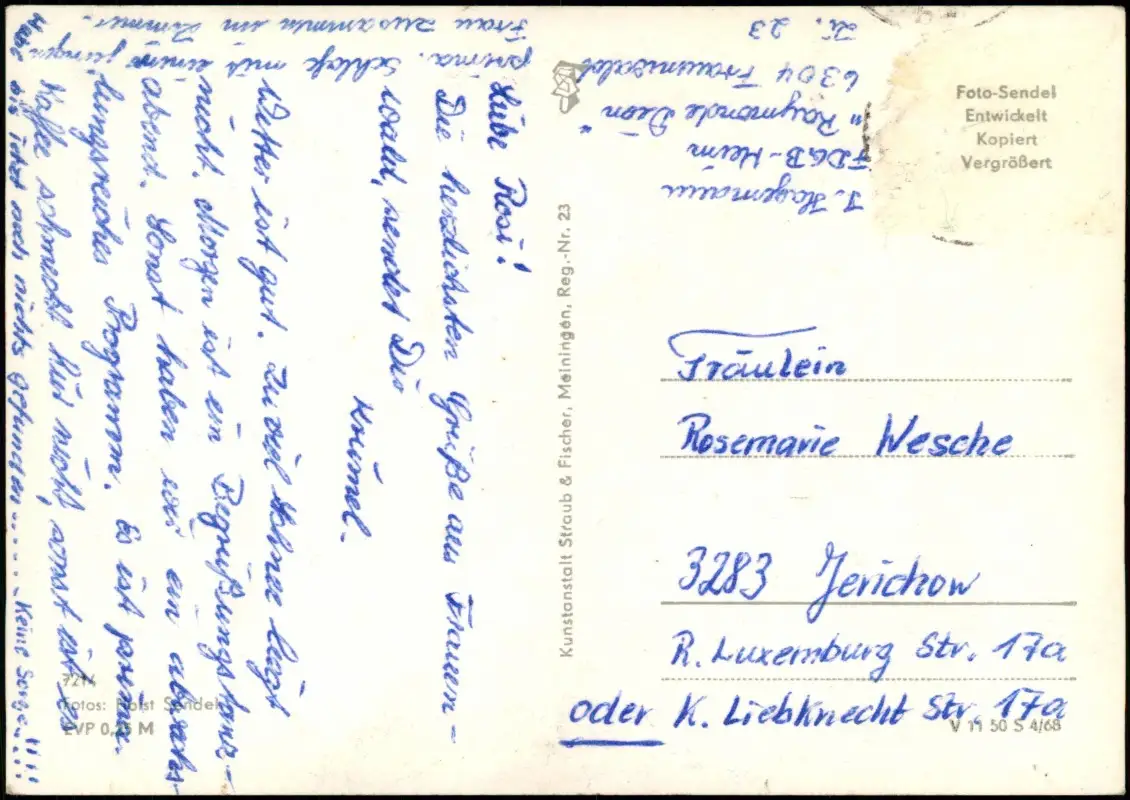 Liebe Rosi!
Die herzlichsten Grüße aus Frauen-
wald, sendet Dir
Krümel.
Wetter ist gut. Zu viel Schnee liegt
nicht. Morgen ist ein Begrüßungstanz-
abend. Sonst haben wir ein abwechs-
lungsreiches Programm. Es ist prima.
Kaffee schmeckt hier nicht, sonst ist es
prima. Schlafe mit einer jungen
Frau zusammen im Zimmer.
Habe bis jetzt noch nichts gefunden..... Keine Sorge...!!!!
J. Hagemann
FDGB-Heim
"Raymonde Dien"
6304 Frauenwald
Zi. 23
Foto-Sendel
Entwickelt
Kopiert
Vergrößert
Kunstanstalt Straub & Fischer, Meiningen, Reg.-Nr. 23
Fräulein
Rosemarie Wesche
3283 Jerichow
R. Luxemburg Str. 17a
oder K. Liebknecht Str. 17a
7214
Fotos: Horst Sendel
EVP 0,25 M
V 11 50 S 4/68